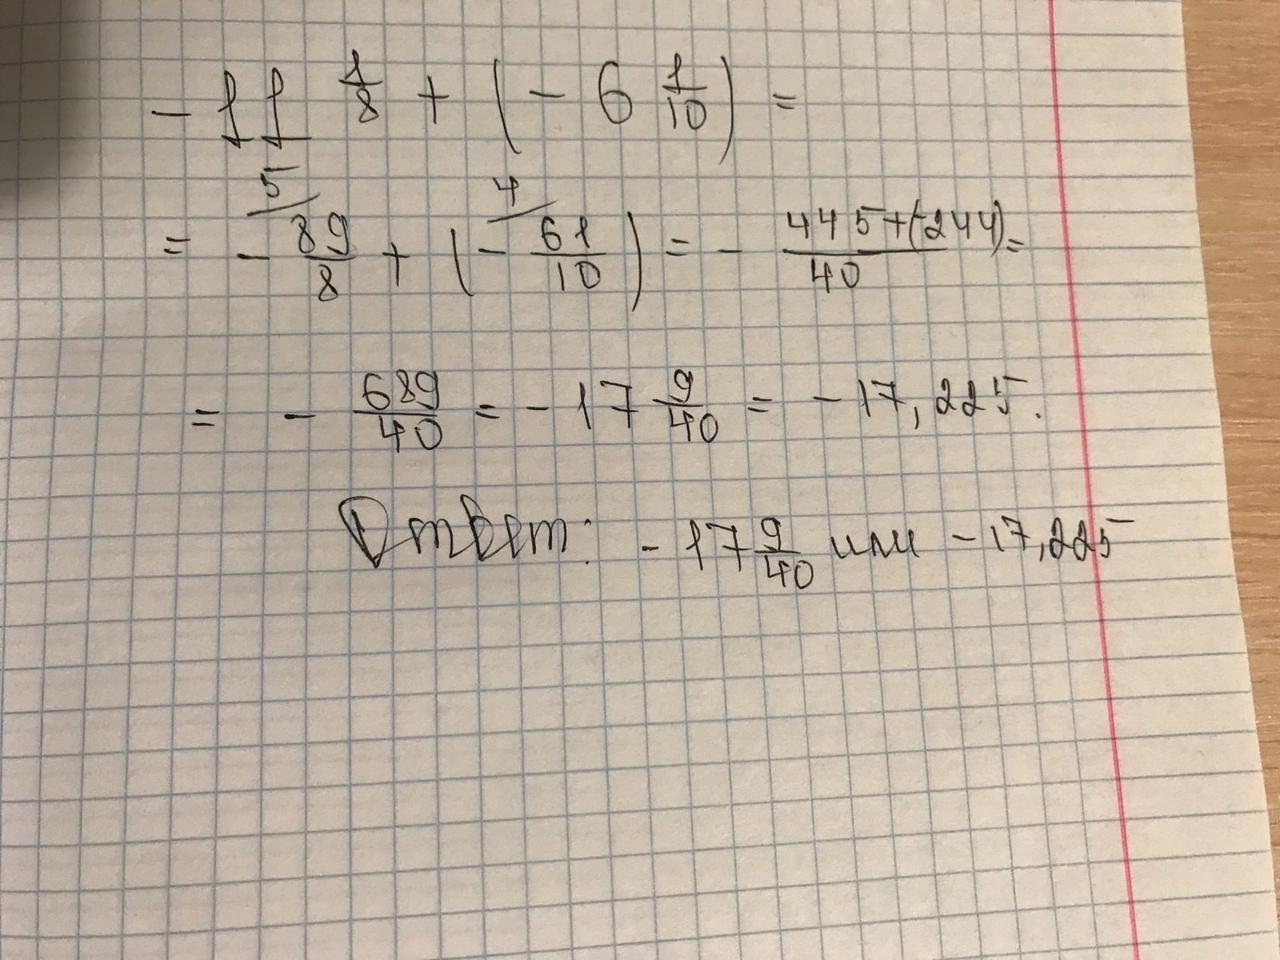 - 11 1/8 + (- 6 1/10) =
= - 89/8 + (- 61/10) = - 445+(-244)/40 =
= - 689/40 = - 17 9/40 = - 17,225.
Ответ: - 17 9/40 или - 17,225